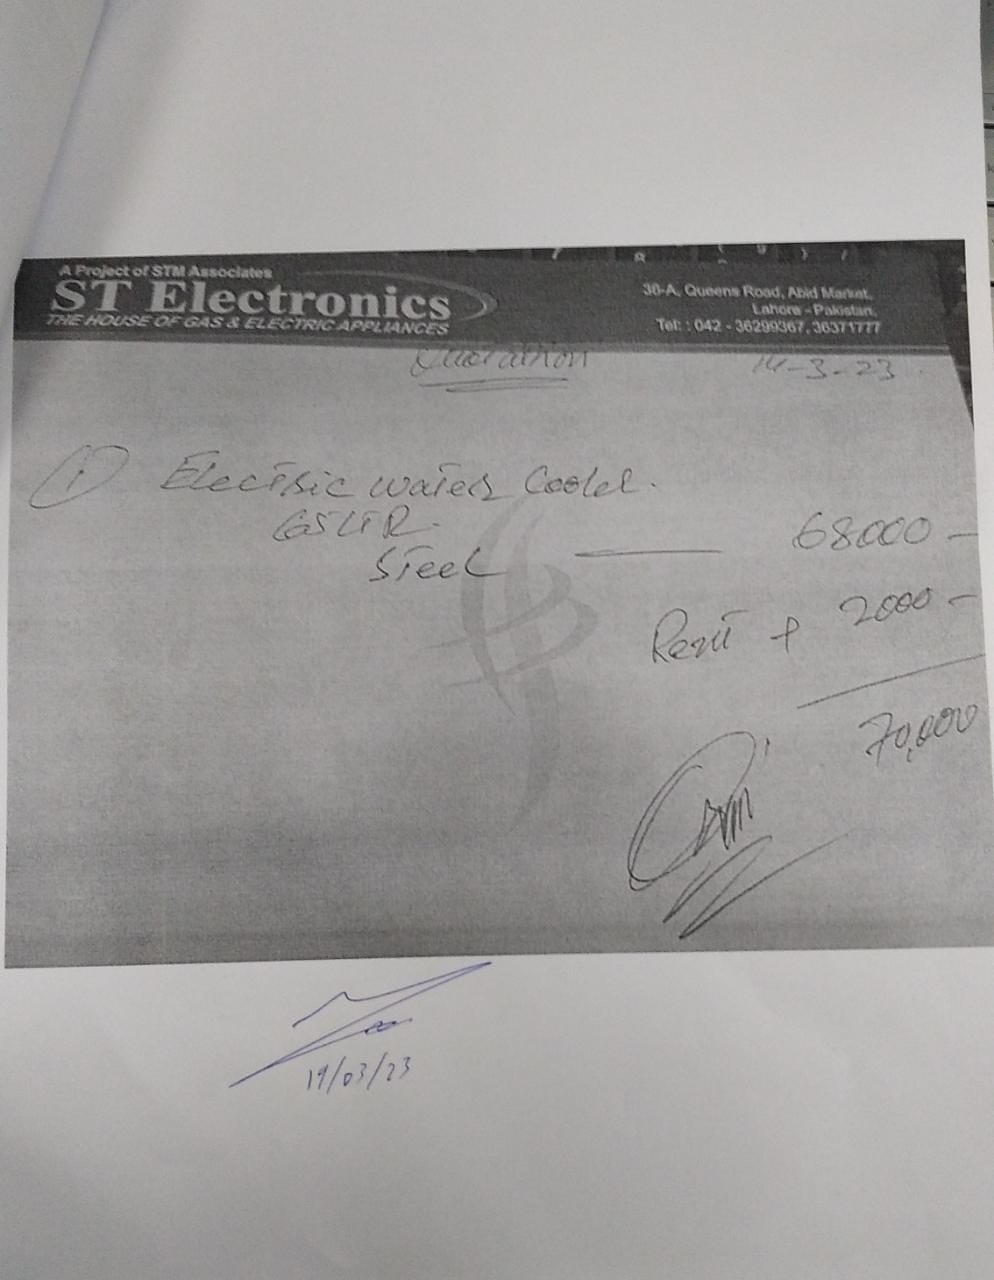 A Project of STM Associates
ST Electronics
THE HOUSE OF GAS & ELECTRIC APPLIANCES
30-A, Queens Road, Abid Market,
Lahore - Pakistan.
Tel: : 042 - 36299367, 36371777
14-3-23
① Electric water Cooler.
65 LTR.
Steel — 68000 —
Rent + 2000 —
70,000
19/03/23